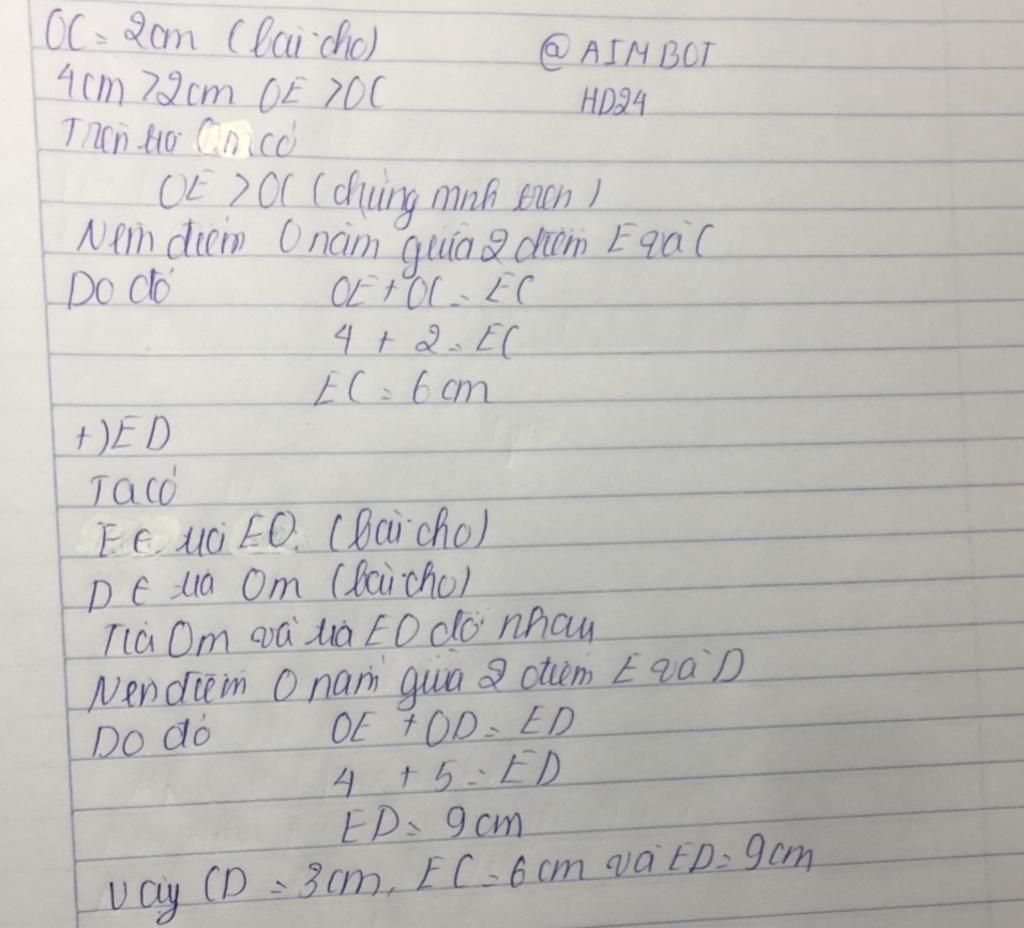 OC = 2cm (bài cho)
@AIMBOT
4cm > 2cm OE > OC
HD24
Trên tia On có
OE > OC (chứng mnh trên)
Nên điểm O nằm giữa 2 điểm E và C
Do đó OE + OC = EC
4 + 2 = EC
EC = 6 cm
+) ED
Ta có
E ∈ tia EO. (bài cho)
D ∈ tia Om (bài cho)
Tia Om và tia EO đối nhau
Nên điểm O nằm giữa 2 điểm E và D
Do đó OE + OD = ED
4 + 5 = ED
ED = 9cm
Vậy CD = 3cm, EC = 6cm và ED = 9cm